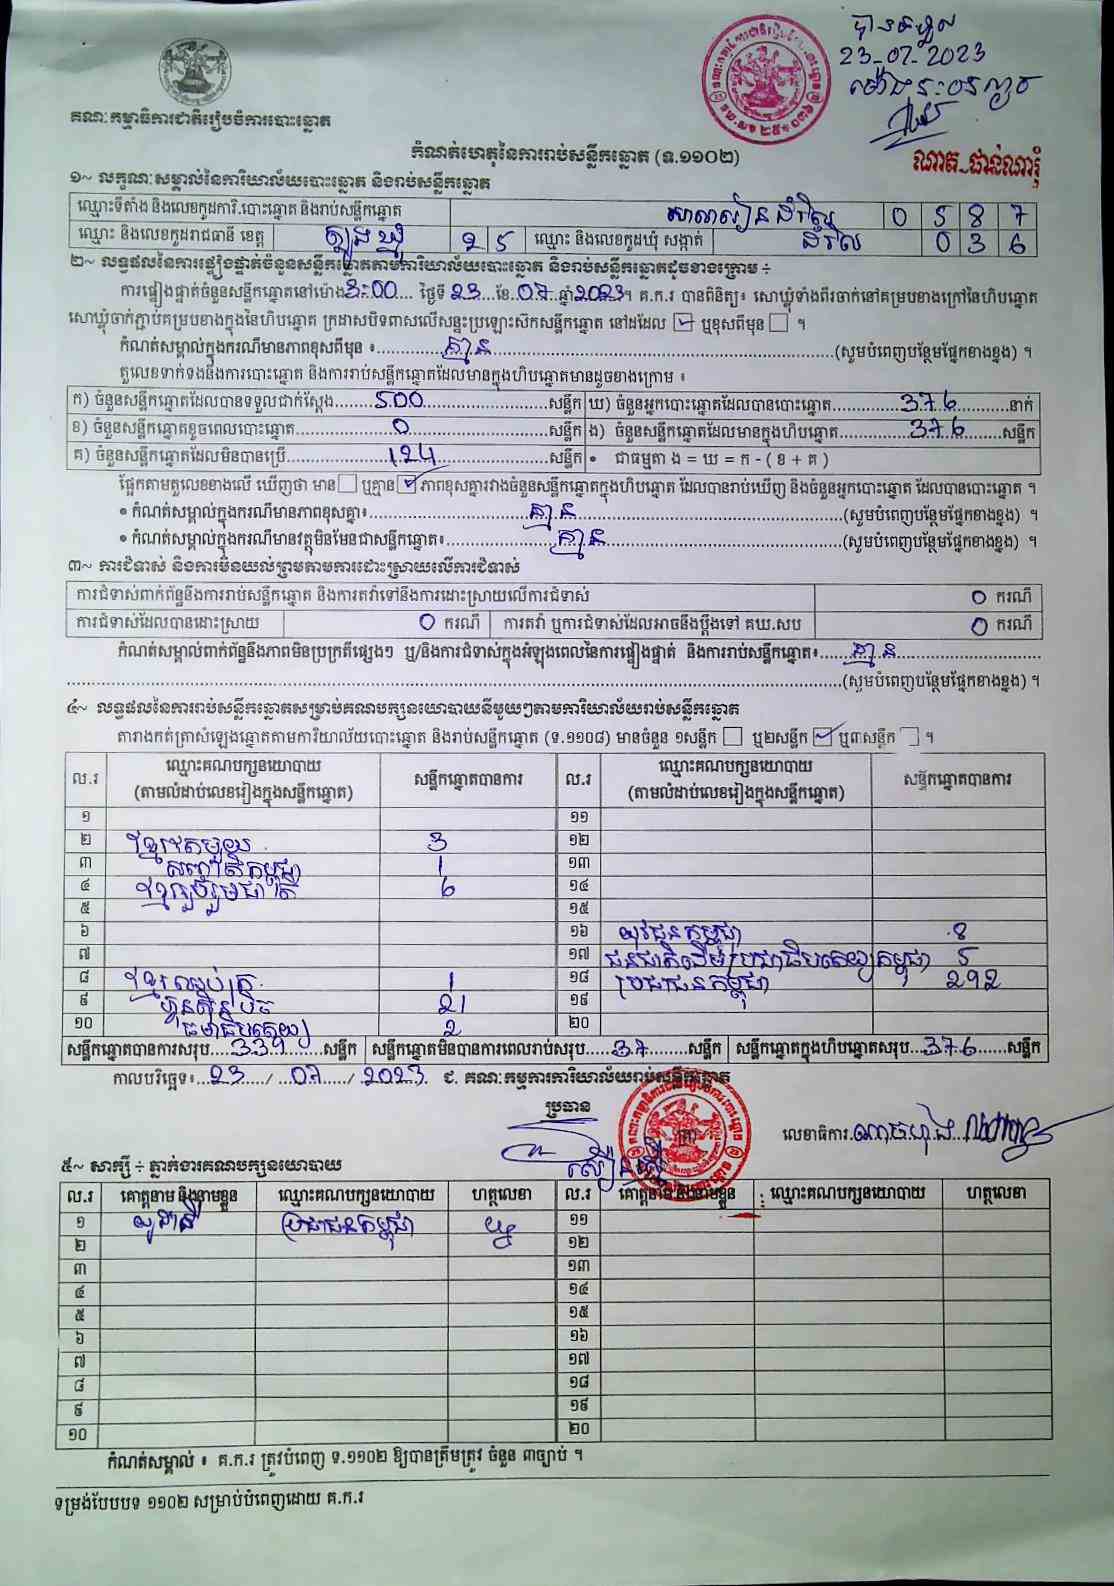 បានទទួល
23-07-2023
គណៈកម្មាធិការជាតិរៀបចំការបោះឆ្នោត
កំណត់ហេតុនៃការរាប់សន្លឹកឆ្នោត (ទ.១១០២)
ណាត ផាន់ណារុំ
១~ លក្ខណៈសម្គាល់នៃការិយាល័យបោះឆ្នោត និងរាប់សន្លឹកឆ្នោត
ឈ្មោះទីតាំង និងលេខកូដការិ.បោះឆ្នោត និងរាប់សន្លឹកឆ្នោត សាលារៀន ជីរោទ៍ 0 5 8 7
ឈ្មោះ និងលេខកូដរាជធានី ខេត្ត ត្បូងឃ្មុំ 2 5 ឈ្មោះ និងលេខកូដឃុំ សង្កាត់ 0 3 6
២~ លទ្ធផលនៃការផ្ទៀងផ្ទាត់ចំនួនសន្លឹកឆ្នោតតាមការិយាល័យបោះឆ្នោត និងរាប់សន្លឹកឆ្នោតដូចខាងក្រោម ÷
ការផ្ទៀងផ្ទាត់ចំនួនសន្លឹកឆ្នោតនៅម៉ោង 3:00 ថ្ងៃទី 23 ខែ 07 ឆ្នាំ 2023។ គ.ក.រ បានពិនិត្យ៖ សោឃ្លុំទាំងពីរចាក់នៅគម្របខាងក្រៅនៃហិបឆ្នោត
សោឃ្លុំចាក់ភ្ជាប់គម្របខាងក្នុងនៃហិបឆ្នោត ក្រដាសបិទពាសលើសន្ទះប្រឡោះស៊កសន្លឹកឆ្នោត នៅដដែល ☑ ឬខុសពីមុន ☐ ។
កំណត់សម្គាល់ក្នុងករណីមានភាពខុសពីមុន ៖ គ្មាន (សូមបំពេញបន្ថែមផ្នែកខាងខ្នង) ។
តួលេខទាក់ទងនឹងការបោះឆ្នោត និងការរាប់សន្លឹកឆ្នោតដែលមានក្នុងហិបឆ្នោតមានដូចខាងក្រោម ៖
ក) ចំនួនសន្លឹកឆ្នោតដែលបានទទួលជាក់ស្ដែង 500 សន្លឹក ឃ) ចំនួនអ្នកបោះឆ្នោតដែលបានបោះឆ្នោត 376 នាក់
ខ) ចំនួនសន្លឹកឆ្នោតខូចពេលបោះឆ្នោត 0 សន្លឹក ង) ចំនួនសន្លឹកឆ្នោតដែលមានក្នុងហិបឆ្នោត 376 សន្លឹក
គ) ចំនួនសន្លឹកឆ្នោតដែលមិនបានប្រើ 124 សន្លឹក • ជាធម្មតា ង = ឃ = ក - ( ខ + គ )
ផ្អែកតាមតួលេខខាងលើ ឃើញថា មាន ☐ ឬគ្មាន ☑ ភាពខុសគ្នារវាងចំនួនសន្លឹកឆ្នោតក្នុងហិបឆ្នោត ដែលបានរាប់ឃើញ និងចំនួនអ្នកបោះឆ្នោត ដែលបានបោះឆ្នោត ។
• កំណត់សម្គាល់ក្នុងករណីមានភាពខុសគ្នា៖ គ្មាន (សូមបំពេញបន្ថែមផ្នែកខាងខ្នង) ។
• កំណត់សម្គាល់ក្នុងករណីមានវត្ថុមិនមែនជាសន្លឹកឆ្នោត៖ គ្មាន (សូមបំពេញបន្ថែមផ្នែកខាងខ្នង) ។
៣~ ការជំទាស់ និងការមិនយល់ព្រមតាមការដោះស្រាយលើការជំទាស់
ការជំទាស់ពាក់ព័ន្ធនឹងការរាប់សន្លឹកឆ្នោត និងការតវ៉ាទៅនឹងការដោះស្រាយលើការជំទាស់ 0 ករណី
ការជំទាស់ដែលបានដោះស្រាយ 0 ករណី ការតវ៉ា ឬការជំទាស់ដែលអាចនឹងប្ដឹងទៅ គឃ.សប 0 ករណី
កំណត់សម្គាល់ពាក់ព័ន្ធនឹងភាពមិនប្រក្រតីផ្សេងៗ ឬ/និងការជំទាស់ក្នុងអំឡុងពេលនៃការផ្ទៀងផ្ទាត់ និងការរាប់សន្លឹកឆ្នោត៖ គ្មាន
(សូមបំពេញបន្ថែមផ្នែកខាងខ្នង) ។
៤~ លទ្ធផលនៃការរាប់សន្លឹកឆ្នោតសម្រាប់គណបក្សនយោបាយនីមួយៗតាមការិយាល័យរាប់សន្លឹកឆ្នោត
តារាងកត់ត្រាសំឡេងឆ្នោតតាមការិយាល័យបោះឆ្នោត និងរាប់សន្លឹកឆ្នោត (ទ.១១០៨) មានចំនួន ១សន្លឹក ☐ ឬ២សន្លឹក ☑ ឬ៣សន្លឹក ☐ ។
ល.រ ឈ្មោះគណបក្សនយោបាយ (តាមលំដាប់លេខរៀងក្នុងសន្លឹកឆ្នោត) សន្លឹកឆ្នោតបានការ ល.រ ឈ្មោះគណបក្សនយោបាយ (តាមលំដាប់លេខរៀងក្នុងសន្លឹកឆ្នោត) សន្លឹកឆ្នោតបានការ
១ ១១
២ ខ្មែរតែមួយ 3 ១២
៣ សញ្ជាតិកម្ពុជា 1 ១៣
៤ ខ្មែររួបរួមជាតិ 6 ១៤
៥ ១៥
៦ ១៦ យុវជនកម្ពុជា 8
៧ ១៧ ជនជាតិដើមប្រជាធិបតេយ្យកម្ពុជា 5
៨ ខ្មែរឈប់ក្រ 1 ១៨ ប្រជាជនកម្ពុជា 292
៩ ហ៊្វុនស៊ិនប៉ិច 21 ១៩
១០ ធម្មាធិបតេយ្យ 2 ២០
សន្លឹកឆ្នោតបានការសរុប 339 សន្លឹក សន្លឹកឆ្នោតមិនបានការពេលរាប់សរុប 37 សន្លឹក សន្លឹកឆ្នោតក្នុងហិបឆ្នោតសរុប 376 សន្លឹក
កាលបរិច្ឆេទ៖ 23 / 07 / 2023 ជ. គណៈកម្មការការិយាល័យរាប់សន្លឹកឆ្នោត
ប្រធាន
លេខាធិការ
៥~ សាក្សី ÷ ភ្នាក់ងារគណបក្សនយោបាយ
ល.រ គោត្តនាម និងនាមខ្លួន ឈ្មោះគណបក្សនយោបាយ ហត្ថលេខា ល.រ គោត្តនាម និងនាមខ្លួន ឈ្មោះគណបក្សនយោបាយ ហត្ថលេខា
១ ប្រជាជនកម្ពុជា ១១
២ ១២
៣ ១៣
៤ ១៤
៥ ១៥
៦ ១៦
៧ ១៧
៨ ១៨
៩ ១៩
១០ ២០
កំណត់សម្គាល់ ៖ គ.ក.រ ត្រូវបំពេញ ទ.១១០២ ឱ្យបានត្រឹមត្រូវ ចំនួន ៣ច្បាប់ ។
ទម្រង់បែបបទ ១១០២ សម្រាប់បំពេញដោយ គ.ក.រ